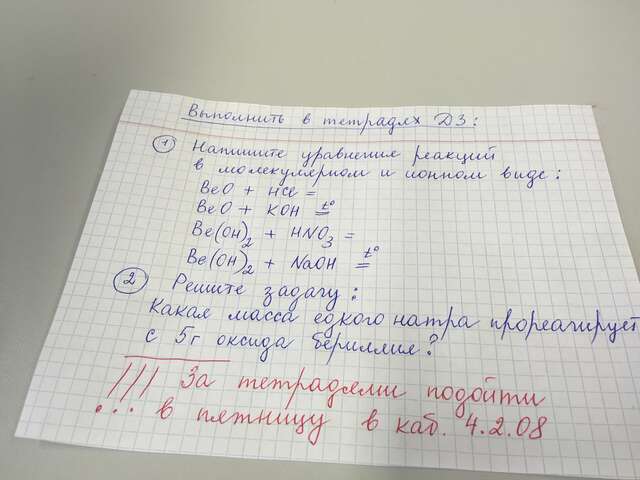 Выполнить в тетрадях ДЗ:
1 Напишите уравнения реакций
в молекулярном и ионном виде:
BeO + HCl =
BeO + KOH t° =
Be(OH)2 + HNO3 =
Be(OH)2 + NaOH t° =
2 Решите задачу:
Какая масса едкого натра прореагирует
с 5г оксида бериллия?
!!! За тетрадями подойти
в пятницу в каб. 4.2.08